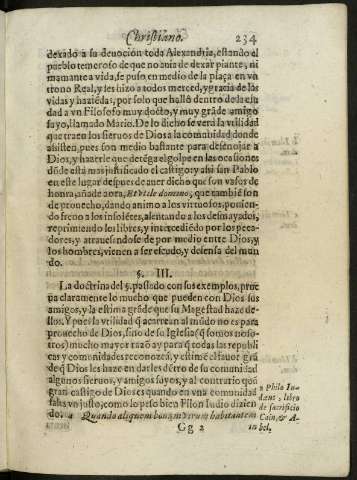 Christiano. 234
dexado a su deuocion toda Alexandria, estando el
pueblo temeroso de que no auia de dexar piante, ni
mamante a vida, se puso en medio de la plaça en vn
trono Real, y les hizo a todos merced, y gracia de las
vidas y haziẽdas, por solo que hallò dentro de la ciu
dad a vn Filosofo muy docto, y muy grãde amigo
suyo, llamado Mario. De lo dicho se verà la vtilidad
que traen los sieruos de Dios a la comunidad donde
asisten, pues son medio bastante para desenojar a
Dios, y hazerle que detẽga el golpe en las ocasiones
dõde està mas justificado el castigo: y asi san Pablo
en este lugar despues de auer dicho que son vasos de
honra, añade aora, Et vtile domino, que tambiẽ son
de prouecho, dando animo a los virtuosos, ponien-
do freno a los insolẽtes, alentando a los desmayados,
reprimiendo los libres, y intercediẽdo por los peca-
dores, y atrauesandose de por medio entre Dios, y
los hombres, vienen a ser escudo, y defensa del mun
do.
§. III.
La doctrina del §. passado con sus exemplos, prue
ua claramente lo mucho que pueden con Dios sus
amigos, y la estima grãde que su Magestad haze de-
llos. Y pues la vtilidad q̃ acarrean al mũdo no es para
prouecho de Dios, sino de su Iglesia (q̃ somos noso-
tros) mucho mayor razõ ay para q̃ todas las republi
cas y comunidades reconozcã, y estimẽ el fauor grã
de q̃ Dios les haze en darles dẽtro de su comunidad
algunos sieruos, y amigos suyos, y al contrario quã
gran castigo de Dios es quando en vna comunidad
falta vn justo, como lo pesò bien Filon Iudio dizien
do. a Quando aliquem bonum virum habitantem
a Philo Iu-
dæus, libro
de sacrificio
Cain, & A-
bel.
Gg 2
in